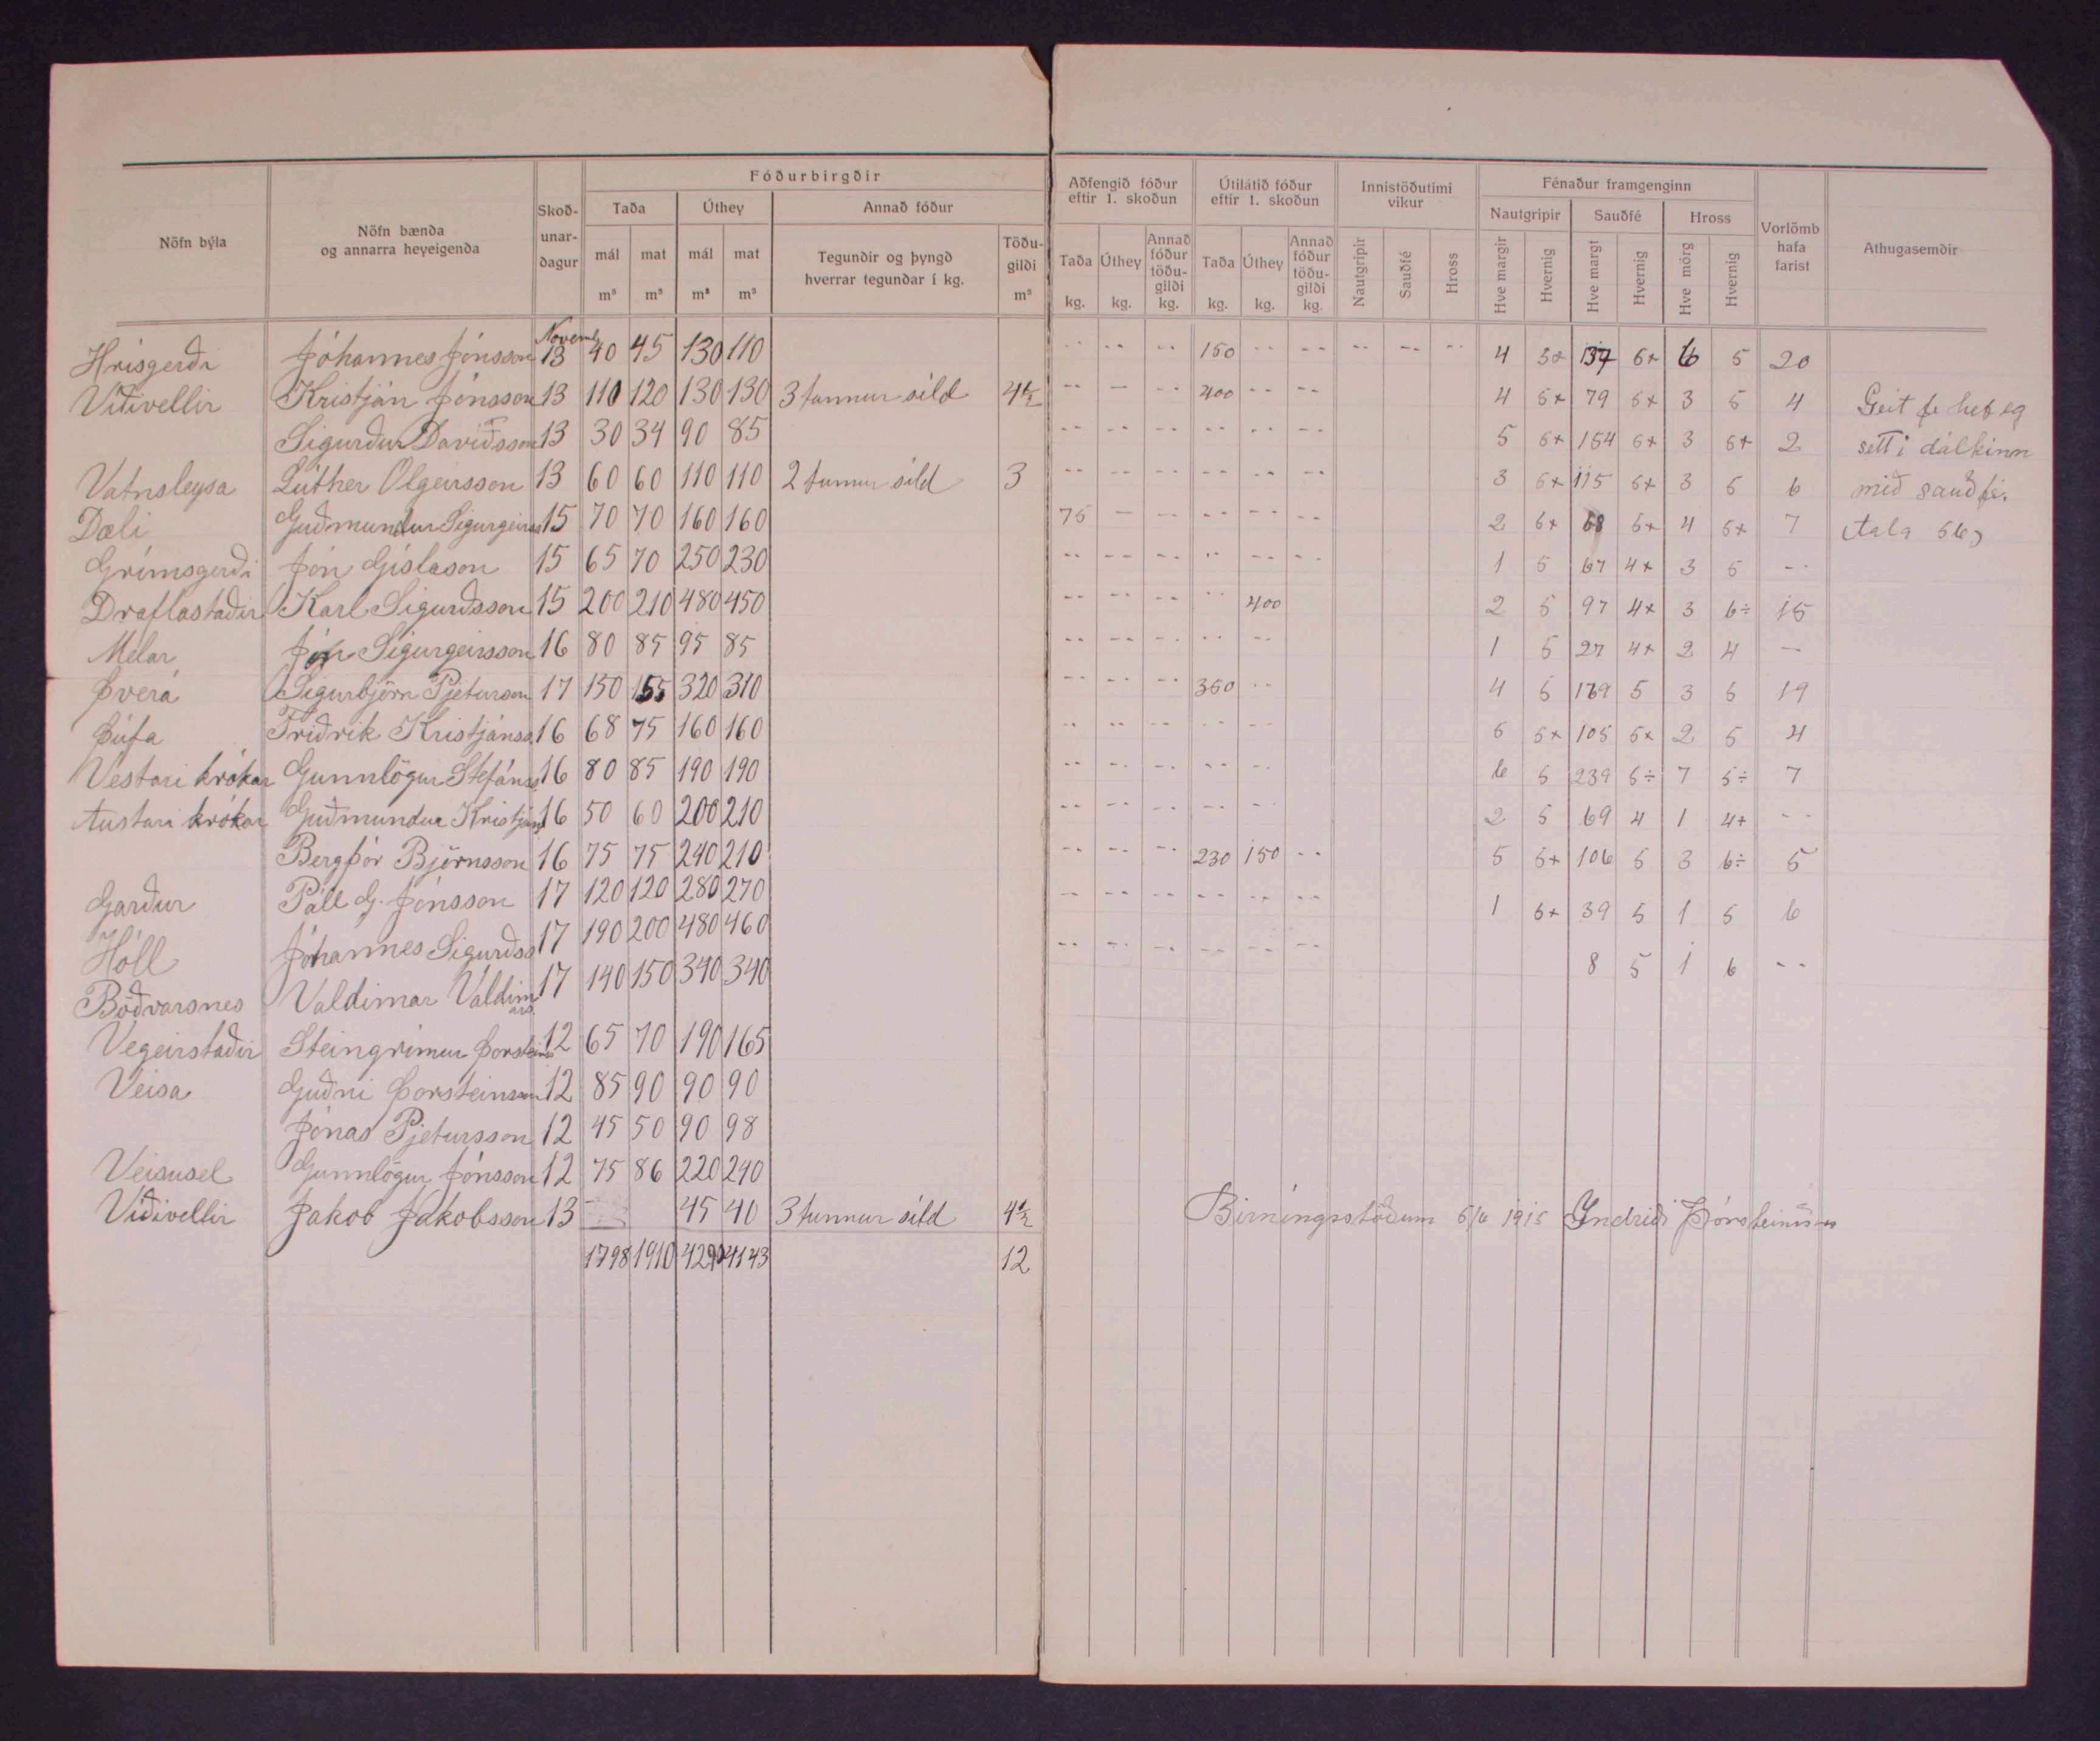 Fóðurbirgðir
Nöfn býla | Nöfn bænda og annarra heyeigenda | Skoð-unar-dagur | Taða | Úthey | Annað fóður
mál m³ | mat m³ | mál m³ | mat m³ | Tegundir og þyngd hverrar tegundar í kg. | Töðu-gildi m³
Aðfengið fóður eftir 1. skoðun | Útilátið fóður eftir 1. skoðun | Innistöðutími vikur | Fénaður framgenginn | Vorlömb hafa farist | Athugasemdir
Nautgripir | Sauðfé | Hross
Taða kg. | Úthey kg. | Annað fóður töðu-gildi kg. | Taða kg. | Úthey kg. | Annað fóður töðu-gildi kg. | Nautgripir | Sauðfé | Hross | Hve margir | Hvernig | Hve margt | Hvernig | Hve mörg | Hvernig
Novemb
Hrísgerði | Jóhannes Jónsson | 13 | 40 | 45 | 130 | 110
Víðivellir | Kristján Jónsson | 13 | 110 | 120 | 130 | 130 | 3 tunnur síld | 4½
Sigurður Davíðsson | 13 | 30 | 34 | 90 | 85
Vatnsleysa | Lúther Olgeirsson | 13 | 60 | 60 | 110 | 110 | 2 tunnur síld | 3
Dæli | Guðmundur Sigurgeirss | 15 | 70 | 70 | 160 | 160
Grímsgerði | Jón Gíslason | 15 | 65 | 70 | 250 | 230
Draflastaðir | Karl Sigurðsson | 15 | 200 | 210 | 480 | 450
Melar | Jón Sigurgeirsson | 16 | 80 | 85 | 95 | 85
Þverá | Sigurbjörn Pjetursson | 17 | 150 | 155 | 320 | 310
Þúfa | Friðrik Kristjánss. | 16 | 68 | 75 | 160 | 160
Vestari krókar | Gunnlögur Stefánss | 16 | 80 | 85 | 190 | 190
Austari krókar | Guðmundur Kristjáns | 16 | 50 | 60 | 200 | 210
Bergþór Björnsson | 16 | 75 | 75 | 240 | 210
Garður | Páll G. Jónsson | 17 | 120 | 120 | 280 | 270
Hóll | Jóhannes Sigurðss | 17 | 190 | 200 | 480 | 460
Böðvarsnes | Valdimar Valdimars. | 17 | 140 | 150 | 340 | 340
Vegeirstaðir | Steingrímur Þorsteins | 12 | 65 | 70 | 190 | 165
Veisa | Guðni Þorsteinsson | 12 | 85 | 90 | 90 | 90
Jónas Pjetursson | 12 | 45 | 50 | 90 | 98
Veisusel | Gunnlögur Jónsson | 12 | 75 | 86 | 220 | 240
Víðivellir | Jakob Jakobsson | 13 | - | 45 | 40 | 3 tunnur síld | 4½
1798 | 1910 | 4290 | 4143 | 12
-- | -- | -- | 150 | -- | -- | -- | -- | -- | 4 | 5+ | 137 | 5+ | 6 | 5 | 20
-- | -- | -- | 400 | -- | -- | 4 | 5+ | 79 | 5+ | 3 | 5 | 4 | Geit fe hef eg
-- | -- | -- | -- | -- | -- | 5 | 5+ | 154 | 5+ | 3 | 5+ | 2 | sett í dálkinn
-- | -- | -- | -- | -- | -- | 3 | 5+ | 115 | 5+ | 3 | 5 | 6 | með sauðfé.
75 | -- | -- | -- | -- | -- | 2 | 5+ | 68 | 5+ | 4 | 5+ | 7 | (tala 56)
-- | -- | -- | -- | -- | -- | 1 | 5 | 67 | 4+ | 3 | 5 | --
-- | -- | -- | -- | 400 | 2 | 5 | 97 | 4+ | 3 | 5÷ | 15
-- | -- | -- | -- | -- | 1 | 5 | 27 | 4+ | 2 | 4 | --
-- | -- | -- | 350 | -- | 4 | 5 | 169 | 5 | 3 | 5 | 19
-- | -- | -- | -- | -- | 5 | 5+ | 105 | 5+ | 2 | 5 | 4
-- | -- | -- | -- | -- | 6 | 5 | 239 | 5÷ | 7 | 5÷ | 7
-- | -- | -- | -- | -- | 2 | 5 | 69 | 4 | 1 | 4+ | --
-- | -- | -- | 230 | 150 | -- | 5 | 5+ | 106 | 5 | 3 | 5÷ | 5
-- | -- | -- | -- | -- | -- | 1 | 5+ | 39 | 5 | 1 | 5 | 6
-- | -- | -- | -- | -- | -- | 8 | 5 | 1 | 6 | --
Birningsstöðum 5/6 1915 Indriði Þórsteinsson